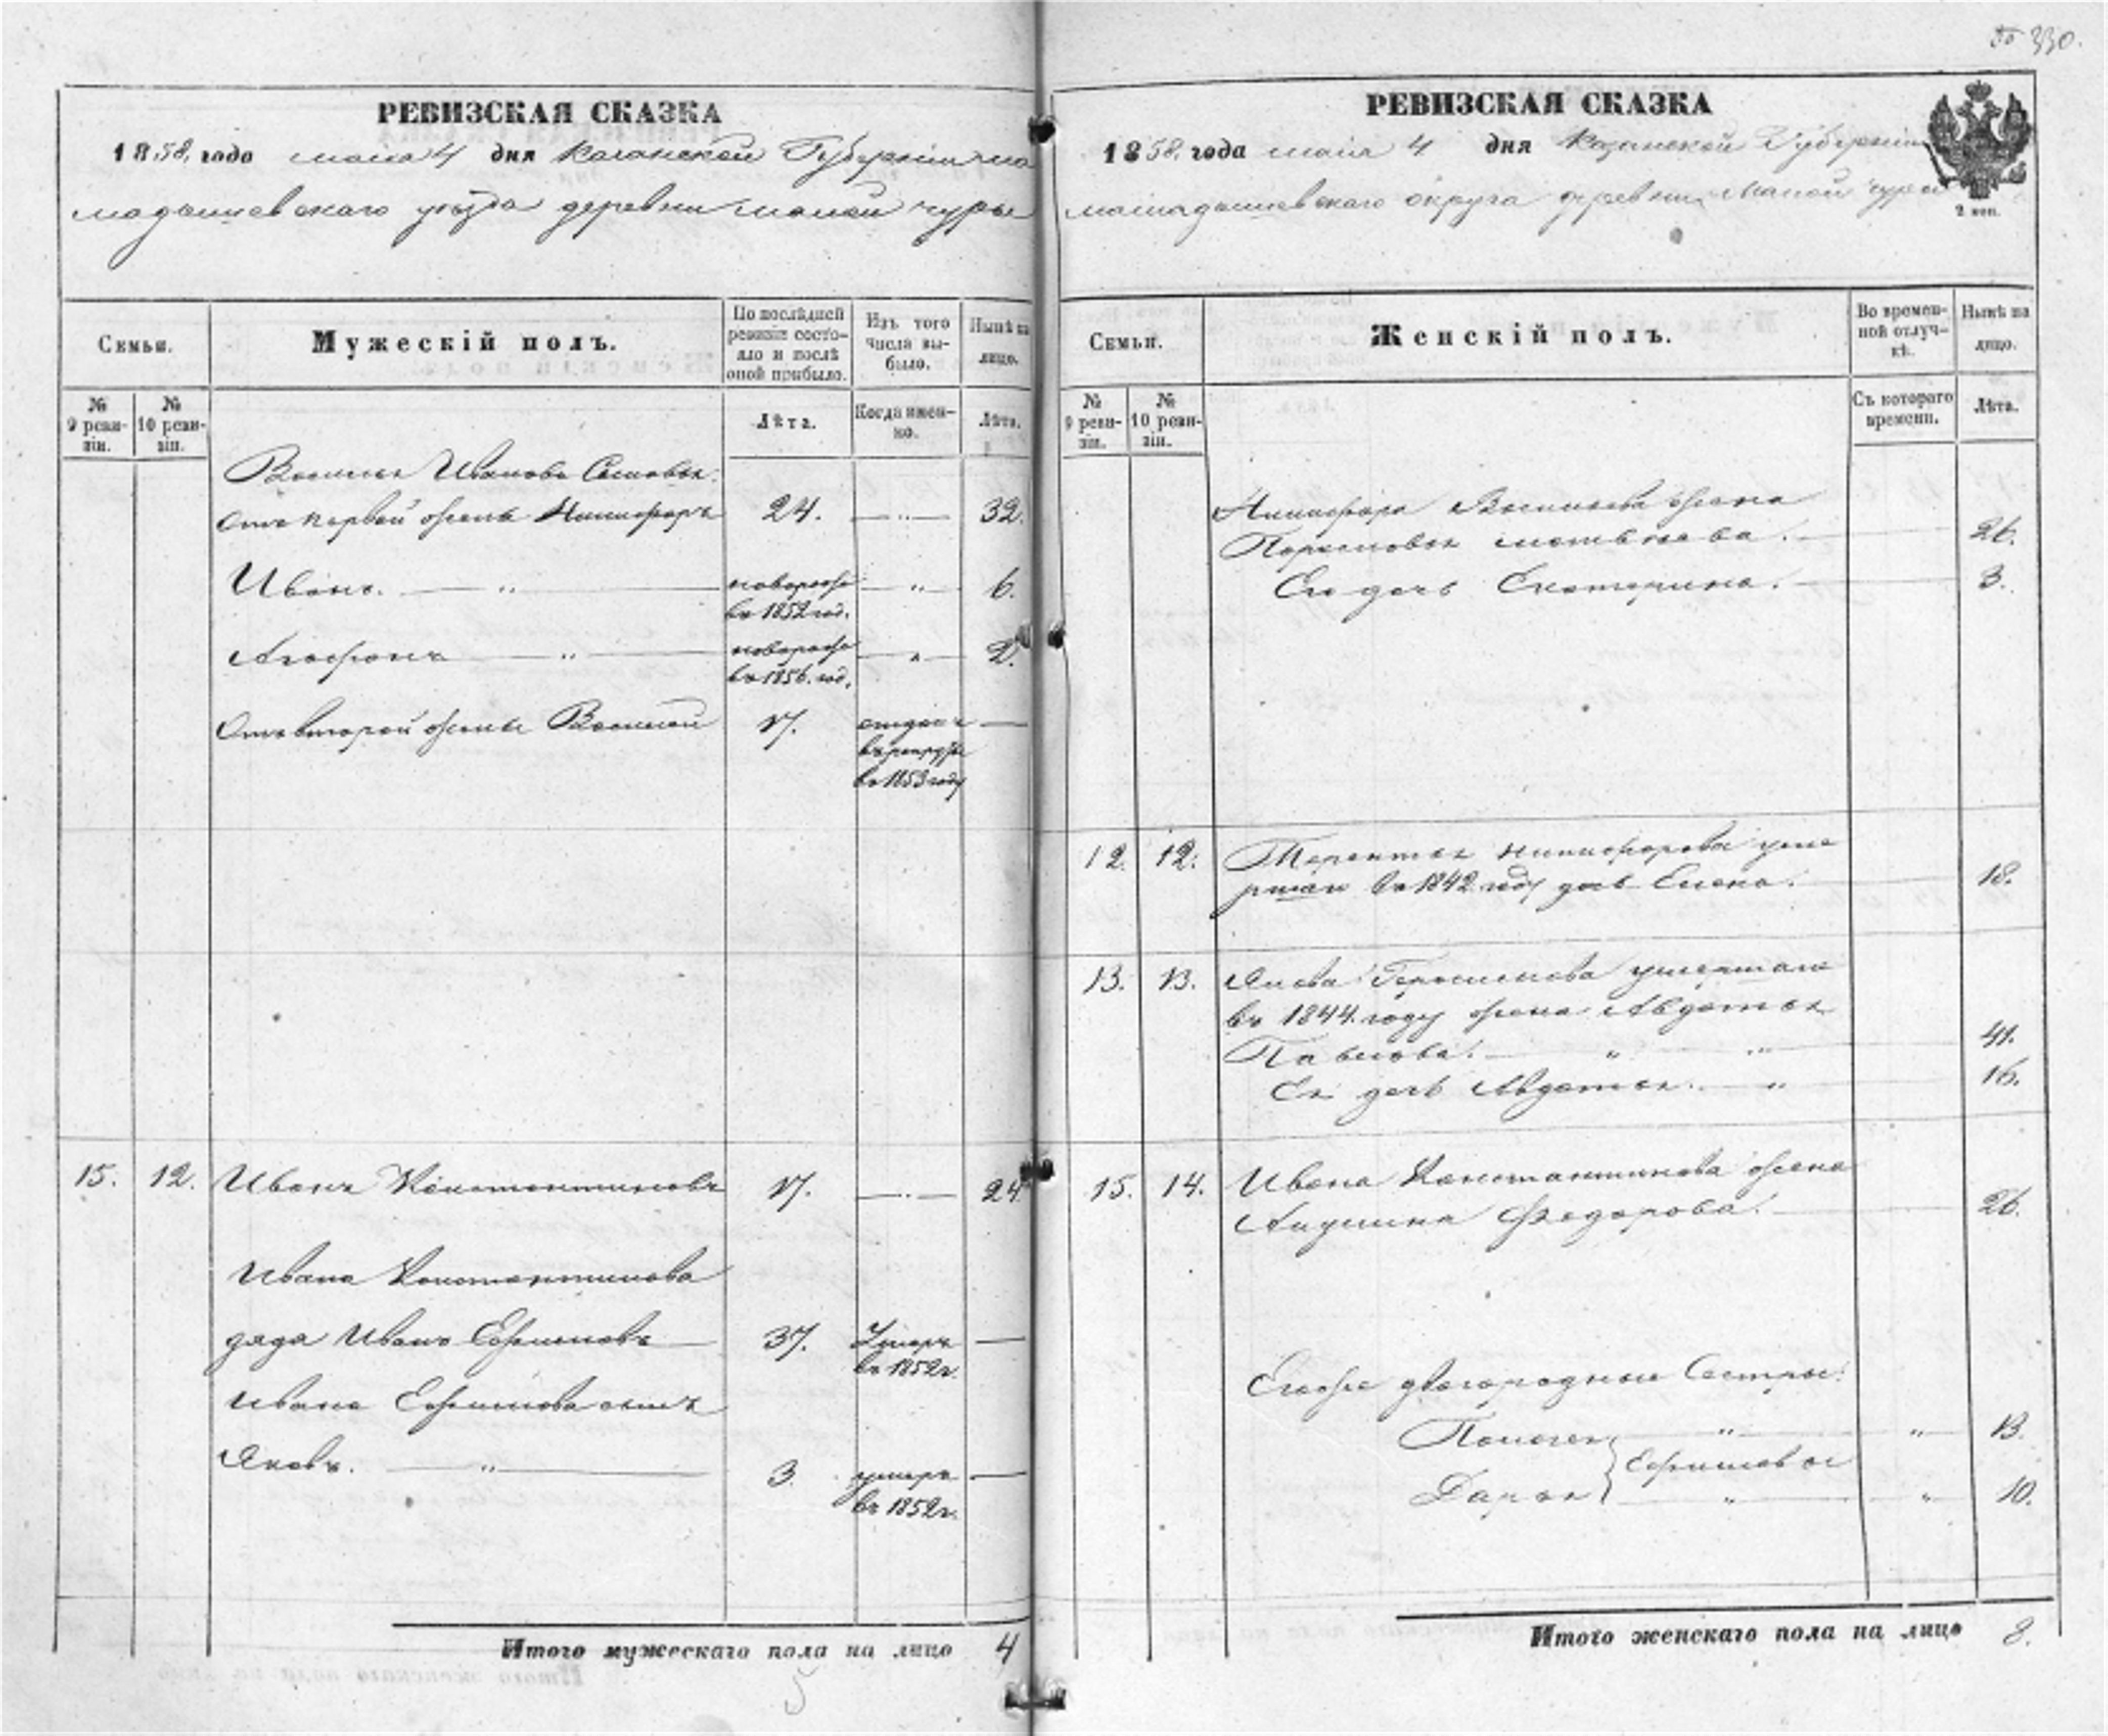 330.
РЕВИЗСКАЯ СКАЗКА
1858. года мая 4 дня Казанской Губернии ма
мадышевскаго уезда деревни малой чуры
Семьи.
Мужескій полъ.
По послѣдней ревизіи состояло и послѣ оной прибыло.
Изъ того числа выбыло.
Нынѣ на лицо.
№ 9 ревизіи.
№ 10 ревизіи.
Лѣта.
Когда именно.
Лѣта.
Василья Иванова Сыновья.
Отъ первой жены Никифоръ 24. — " — 32.
Иванъ. — " — новорожд — " — 6.
въ 1852 год.
Агафонъ — " — новорожд — " — 2.
въ 1856. год.
Отъ второй жены Василій 17. отданъ —
въ рекруты
въ 1853 году
15. 12. Иванъ Константиновъ 17. — 24
Ивана Константинова
дядя Иванъ Ефимовъ 37. Умеръ —
въ 1852 г.
Ивана Ефимова сынъ
Яковъ. — " — 3. умеръ —
въ 1852 г.
Итого мужескаго пола на лицо 4
5
РЕВИЗСКАЯ СКАЗКА
1858. года мая 4 дня Казанской Губерніи
мамадышевскаго округа деревни Малой чуры
2 коп.
Семьи.
Женскій полъ.
Во временной отлучкѣ.
Нынѣ на лицо.
№ 9 ревизіи.
№ 10 ревизіи.
Съ котораго времени.
Лѣта.
Никифора Васильева жена
матвѣева. — 26.
Его дочь Екатерина. — 3.
12. 12. Терентья Никифорова уме
ршаго въ 1842 году дочь Елена. — 18.
13. 13. Якова Герасимова умершаго
въ 1844. году жена Авдотья
Павлова. — " — " — 41.
Ея дочь Авдотья. — " — 16.
15. 14. Ивана Константинова жена
Акулина Федорова. — 26.
Его же двоюродныя Сестры:
Пелагея — " — " — 13.
Ефимовы
Дарья — " — " — 10.
Итого женскаго пола на лицо 8.